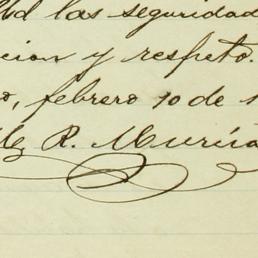 las seguridad
cion y respeto.
o, febrero 10 de 1
R. Murúa